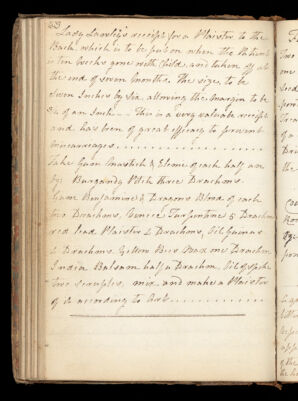 53
Lady Lawley's receipt for a Plaister to the
Back, which is to be put on when the Patient
is Ten Weeks gone with Child, and taken off at
the end of seven months. The size, to be
seven Inches by six, allowing the margin to be
3/4 of an Inch - This is a very valuable receipt
and has been of great efficacy to prevent
miscarriages
Take Gum Mastich & of each half an
Burgandy Pitch three Drachms.
Gum Benjamine & Dragons Blood of each
two Drachms, Venice Turpentine 5 Drachms
red lead Plaister 2 Drachms, Oil
2 Drachms, Yellow Bees Wax one Drachm
India Balsam half a Drachm, Oil of
two scruples, mix, and make a Plaister
of it according to Art